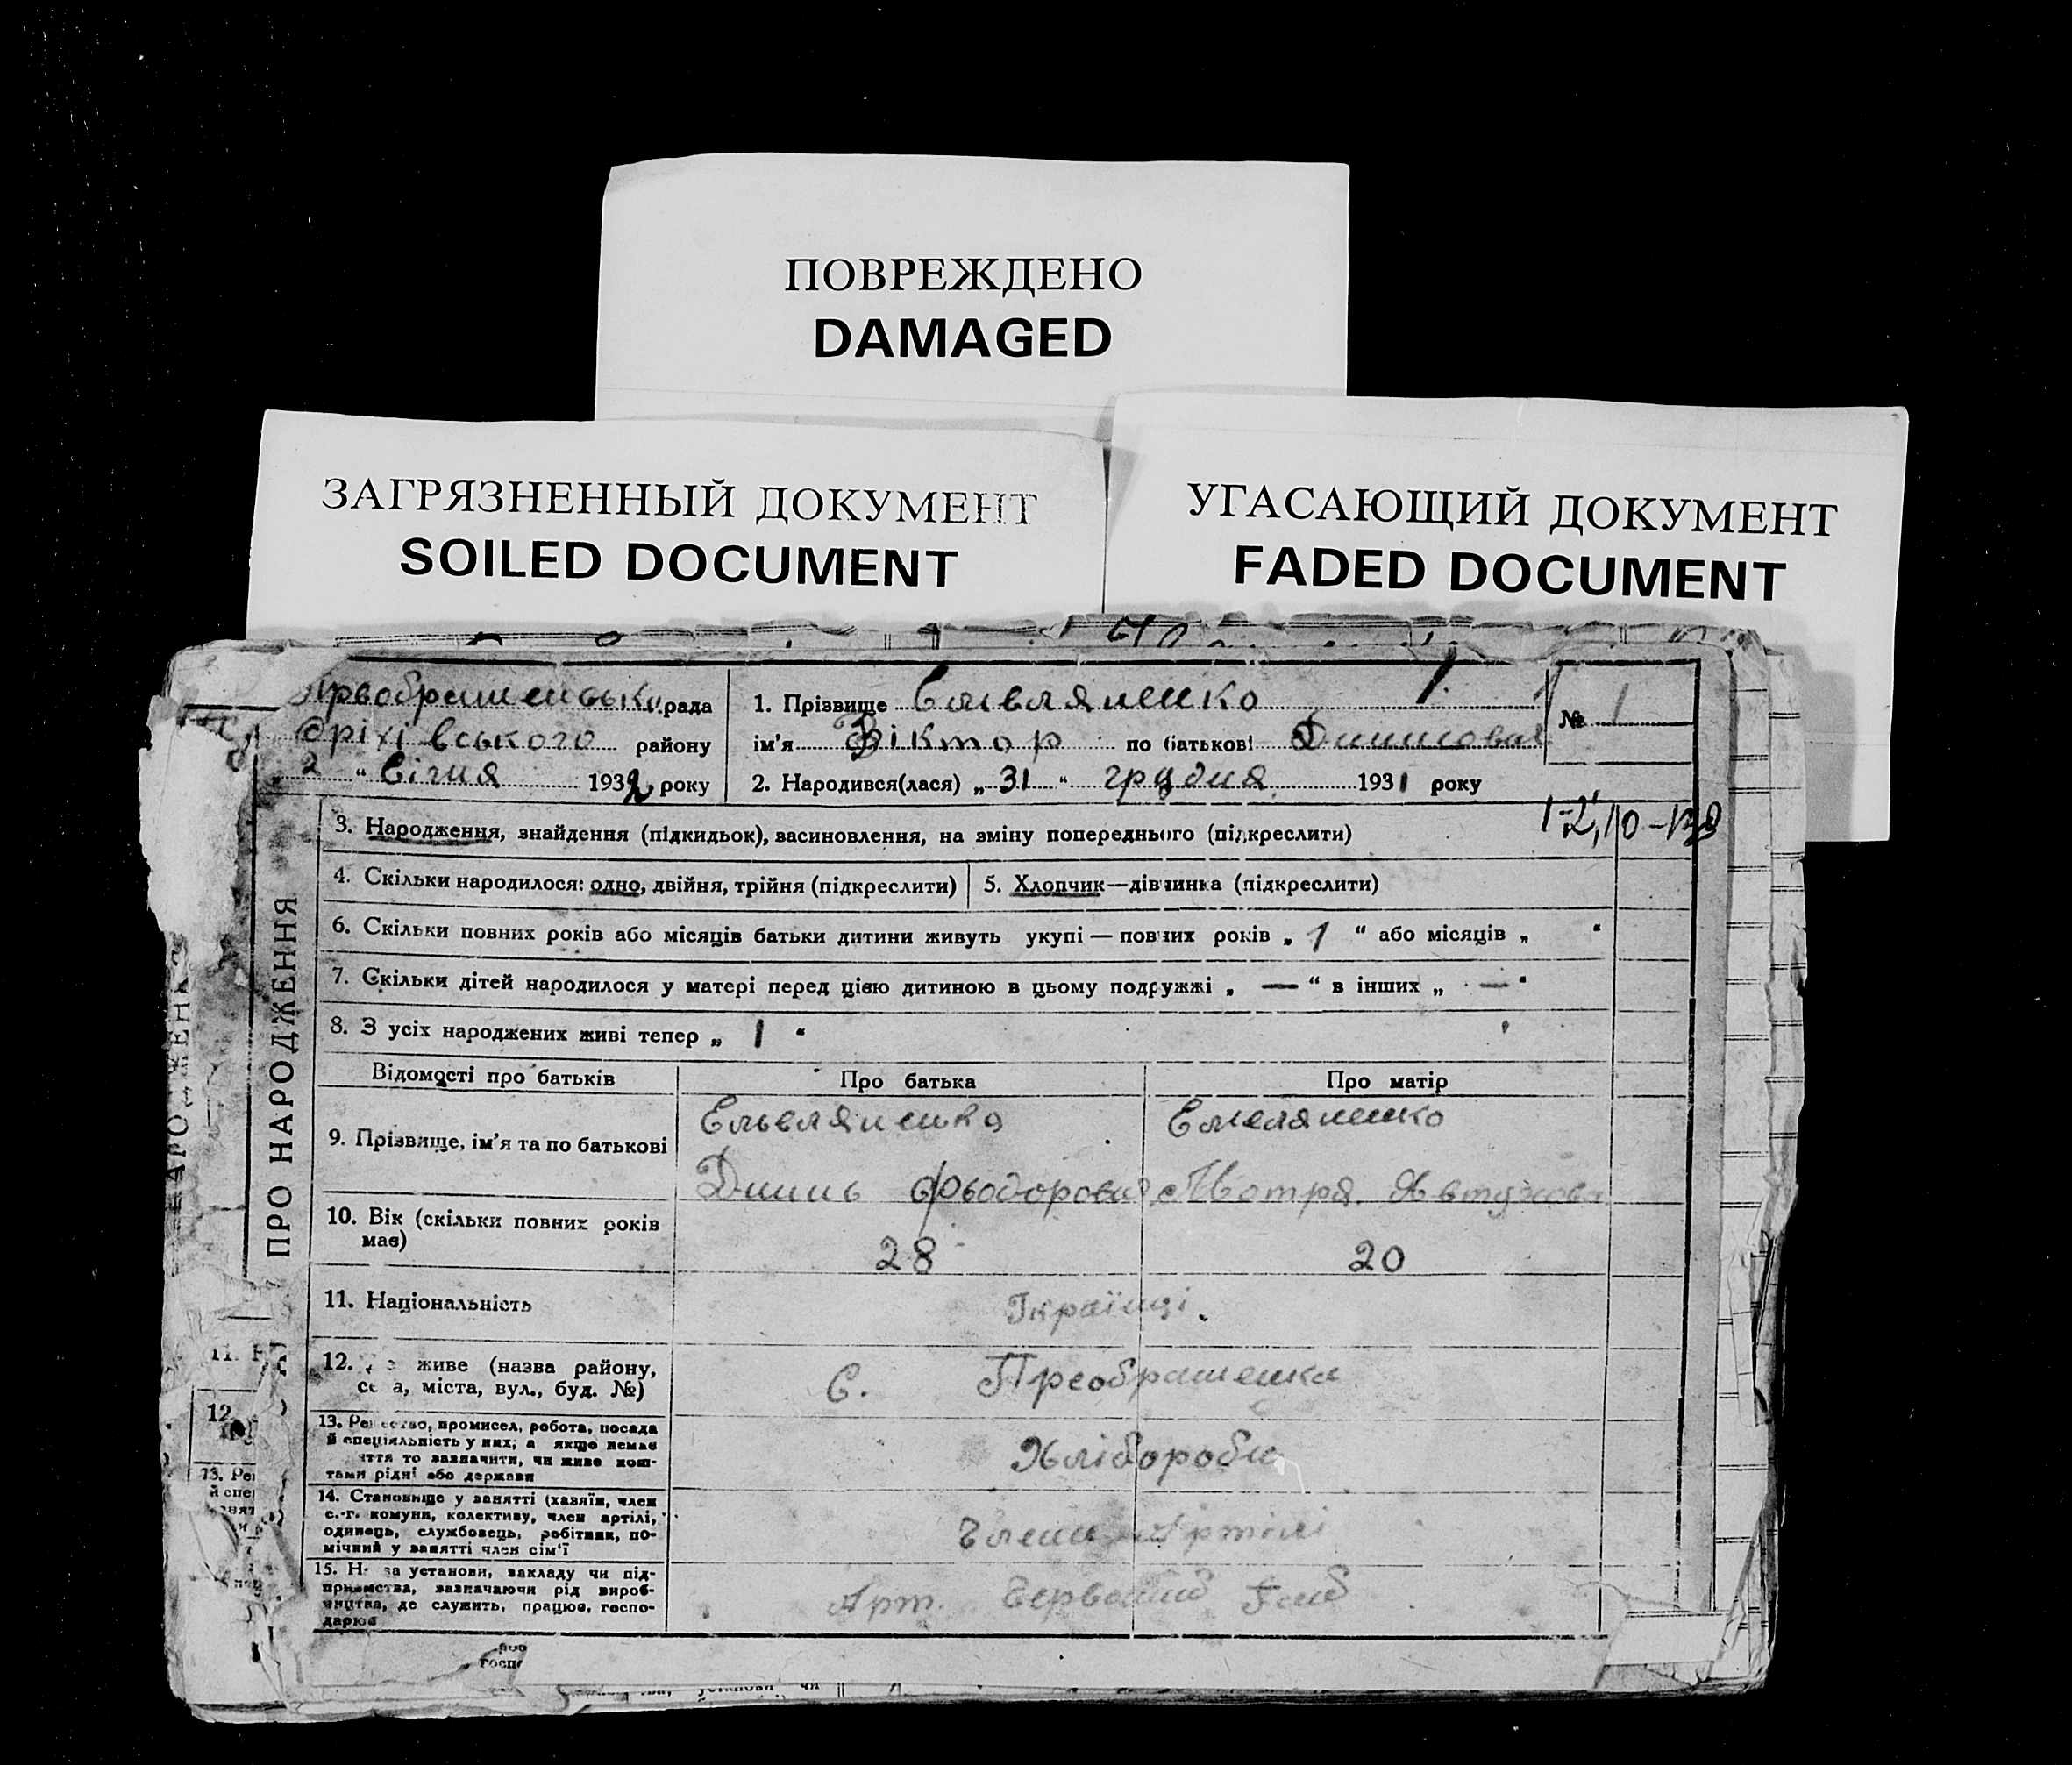 ПОВРЕЖДЕНО
DAMAGED
ЗАГРЯЗНЕННЫЙ ДОКУМЕНТ
SOILED DOCUMENT
УГАСАЮЩИЙ ДОКУМЕНТ
FADED DOCUMENT
рада
Оріхівського району
„ 2 “ Січня 1932 року
1. Прізвище
ім'я Віктор по батькові
2. Народився(лася) „ 31 “ грудня 1931 року
№ 1
ПРО НАРОДЖЕННЯ
3. Народження, знайдення (підкидьок), засиновлення, на зміну попереднього (підкреслити)
4. Скільки народилося: одно, двійня, трійня (підкреслити)
5. Хлопчик—дівчинка (підкреслити)
6. Скільки повних років або місяців батьки дитини живуть укупі — повних років „ 1 “ або місяців „ “
7. Скільки дітей народилося у матері перед цією дитиною в цьому подружжі „ — “ в інших „ — “
8. З усіх народжених живі тепер „ 1 “
Відомості про батьків
Про батька
Про матір
9. Прізвище, ім'я та по батькові
Емеляненко
Мотря
10. Вік (скільки повних років
має)
28
20
11. Національність
Українці.
12. живе (назва району,
села, міста, вул., буд. №)
с. Преображенка
13. промисел, робота, посада
й спеціяльність у них; а якщо немає
то зазначити, чи живе кош-
тами рідні або держави
Хлібороби
14. Становище у занятті (хазяїн, член
с.-г. комуни, колективу, член артілі,
одинець, службовець, робітник, по-
мічний у занятті член сім'ї
Члени Артілі
15. установи, закладу чи під-
приємства, зазначаючи рід вироб-
ництва, де служить, працює, госпо-
дарює
Арт.